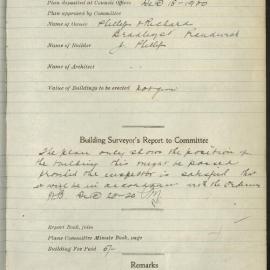 Plan deposited at Council Offices Dec 18-1920
Plan approved by Committee
Name of Owner Phillips & Richard
Bradleys
Name of Builder J. Phillips
Name of Architect
Value of Buildings to be erected
Building Surveyor's Report to Committee
The plan only shows the position of
the building this might be passed
provided the inspector is satisfied that
it will be in accordance with the
Dec 20-20
Report Book, folio
Plans Committee Minute Book, page
Building Fee Paid 5/-
Remarks